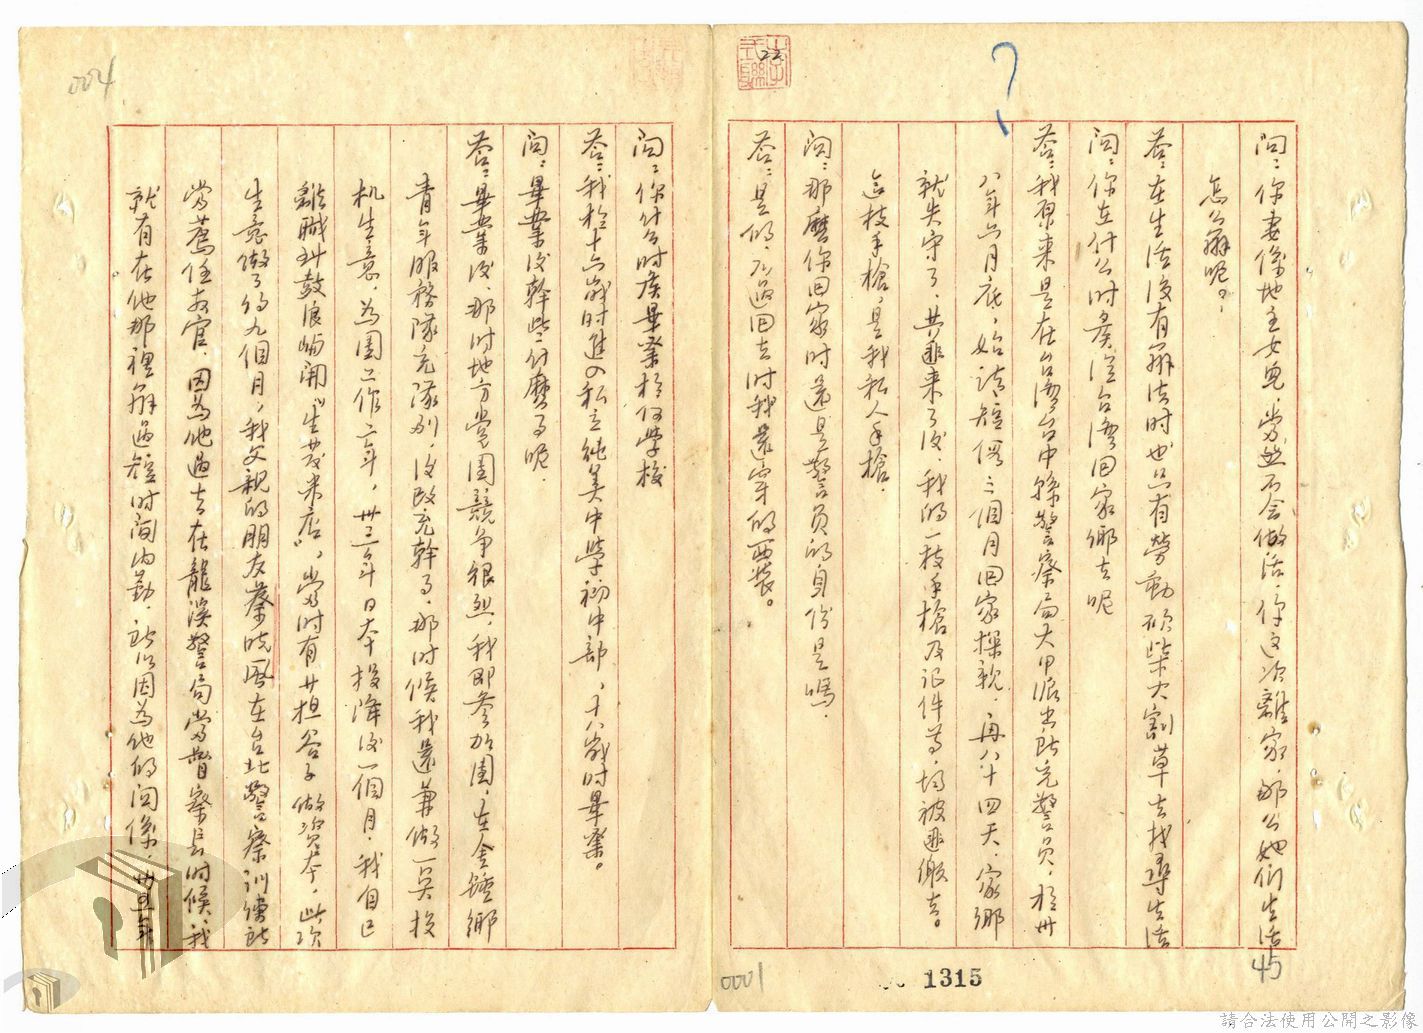 問：你妻係地主女兒，當然不会做活，你这次離家，那么她们生活
怎麽辦呢？
答：在生活没有辦法時也只有勞動砍柴火割草去找尋生活
問：你在什么时候從台湾回家鄉去呢
答：我原来是在台湾台中縣警察局大甲派出所充警員，於卅
八年六月底，始請短假三個月回家探親，再八十四天，家鄉
就失守了，共匪来了後，我的一枝手槍及证件等，均被匪繳去。
这枝手槍，是我私人手槍．
問：那麼你回家时還是警員的身份是嗎．
答：是的，不過回去时我還穿的西裝。
問：你什么时候畢業於何学校
答：我於十六歲時進入私立純美中學初中部，十八歲时畢業。
問：畢業後幹些什麼事呢．
答：畢業後，那时地方党團競争很烈，我即参加團，在金鍾鄉
青年服務隊充隊列，後改充幹事，那时候我還兼做一吴投
机生意，為團工作二年，卅三年日本投降後一個月，我自己
離職到鼓浪嶼開"生茂米店"，當时有廿担谷子做資本，此项
生意做了約九個月，我父親的朋友蔡晓風在台北警察訓練所
當薦任教官，因為他過去在龍溪警局當督察長时候，我
就有在他那裡辦過短时间内勤，所以因為他的関係，卅五年
004
0001
1315
45
22
?
請合法使用公開之影像